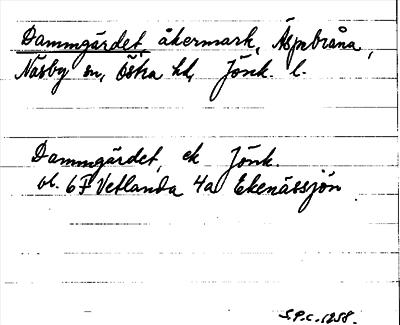 Dammgärdet, åkermark, Äspebråna,
Näsby sn, Östra hd, Jönk. l.
Dammgärdet, ek Jönk.
bl. 6F Vetlanda 4a Ekenässjön
S.P.C. 1258.